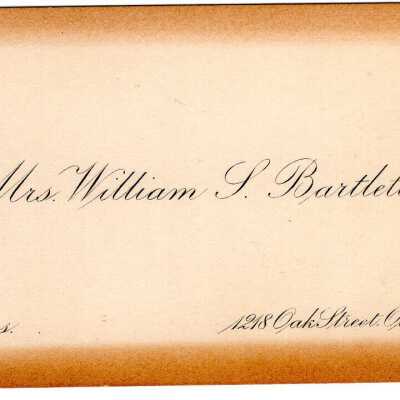 Mrs. William S. Bartlett
1218 Oak Street.